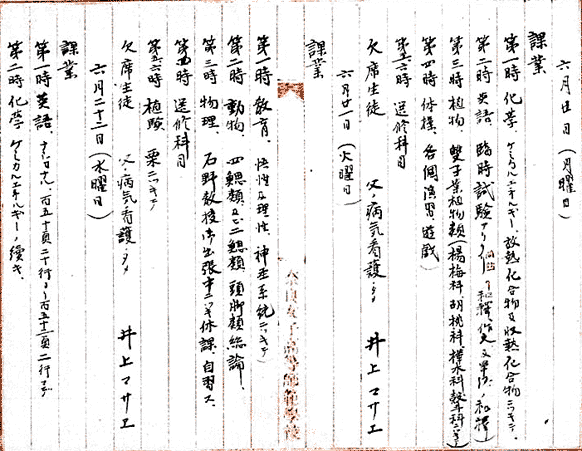 六月廿日(月曜日)
課業
第一時 化学 ケミカルエネルギー、放熱化合物及収熱化合物ニツキテ、
第二時 英語 臨時試験アリ
第三時 植物 雙子葉植物類(楊梅科胡桃科、樺木科殻斗科ニツキ)
第四時 体操、各個演習、遊戯)
第五六時 選修科目
欠席生徒 父ノ病気看護ノタメ 井上マサエ
六月廿一日(火曜日)
課業
第一時 教育、悟性及理性、神亜系統ニツキテ)
第二時 動物、四鰓類及ビ二鰓類、頭脚類総論、
第三時 物理、石野教授御出張中ニツキ休課、自習ス、
第四時 選修科目
第五六時 植験 栗ニツキテ
欠席生徒 父ノ病気看護ノタメ 井上マサエ
六月二十二日(水曜日)
課業
第一時 英語、ナショナル、百五十頁二十行ヨリ百五十二頁二行マデ
第二時 化学 ケミカルエネルギーノ續キ、
奈良女子高等師範学校